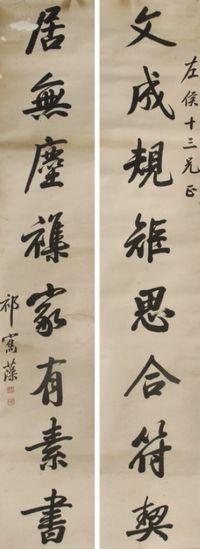 左侯十三兄正
文成規矩思合符契
居無塵襍家有素書
祁寯藻